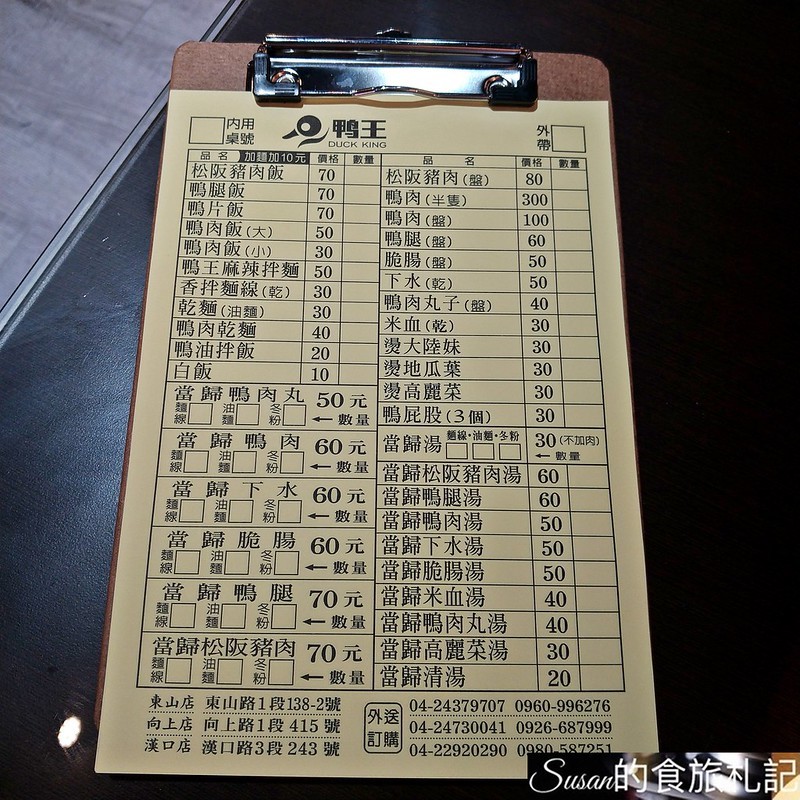 內用
桌號
鴨王
DUCK KING
外帶
品名 加麵加10元 價格 數量
松阪豬肉飯 70
鴨腿飯 70
鴨片飯 70
鴨肉飯(大) 50
鴨肉飯(小) 30
鴨王麻辣拌麵 50
香拌麵線(乾) 30
乾麵(油麵) 30
鴨肉乾麵 40
鴨油拌飯 20
白飯 10
當歸鴨肉丸 50元
麵線 油麵 冬粉 ←數量
當歸鴨肉 60元
麵線 油麵 冬粉 ←數量
當歸下水 60元
麵線 油麵 冬粉 ←數量
當歸脆腸 60元
麵線 油麵 冬粉 ←數量
當歸鴨腿 70元
麵線 油麵 冬粉 ←數量
當歸松阪豬肉 70元
麵線 油麵 冬粉 ←數量
品名 價格 數量
松阪豬肉(盤) 80
鴨肉(半隻) 300
鴨肉(盤) 100
鴨腿(盤) 60
脆腸(盤) 50
下水(乾) 50
鴨肉丸子(盤) 40
米血(乾) 30
燙大陸妹 30
燙地瓜葉 30
燙高麗菜 30
鴨屁股(3個) 30
當歸湯 麵線·油麵·冬粉 30(不加肉)
←數量
當歸松阪豬肉湯 60
當歸鴨腿湯 60
當歸鴨肉湯 50
當歸下水湯 50
當歸脆腸湯 50
當歸米血湯 40
當歸鴨肉丸湯 40
當歸高麗菜湯 30
當歸清湯 20
東山店 東山路1段138-2號
向上店 向上路1段415號
漢口店 漢口路3段243號
外送訂購
04-24379707 0960-996276
04-24730041 0926-687999
04-22920290 0980-587251
Susan的食旅札記